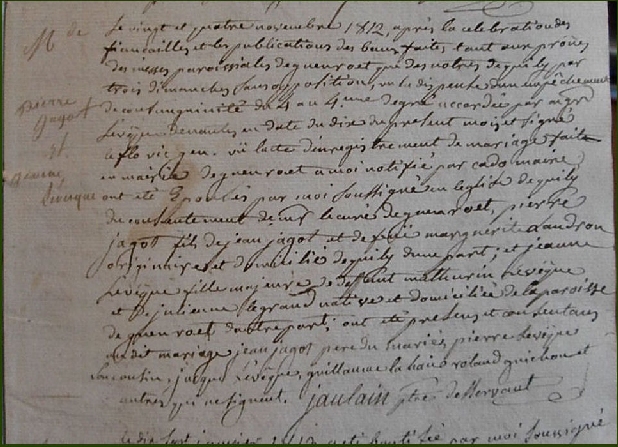 M de
pierre
jagot
et
jeanne
Lévêque
Le vingt et quatre novembre 1812, après la célébration des
fiancailles et les publications des bans faites tant aux prônes
des messes paroissiales de guenroet que des notres de quily par
trois dimanches sans opposition, vu la dispense d'un empêchement
de consanguinité du 4 au 4eme degré accordée par mgr
Levêque de nantes en date du dix du présent mois et signé
vu lacte d'enregistrement de mariage faite
en mairie de guenroet a moi notifié par cado maire
ont été Epousés par moi soussigné en leglise de quily
du consentement de mr le curé de guenroet, pierre
jagot fils de jean jagot et de feue marguerite Landron
originaire et domicilié de quily d'une part; et jeanne
Levêque fille majeure de deffunt mathurin Levêque
et de julienne legrand native et domiciliée de la paroisse
de guenroet d'autre part; ont été présens et consentans
audit mariage jean jagot pere du marié, pierre Levêque
son cousin, jacque Levêque, guillaume la haie roland guichon et
autres qui ne signent. jaulain ptre desservant
le dix sept janvier 1813 a été par moi soussigné